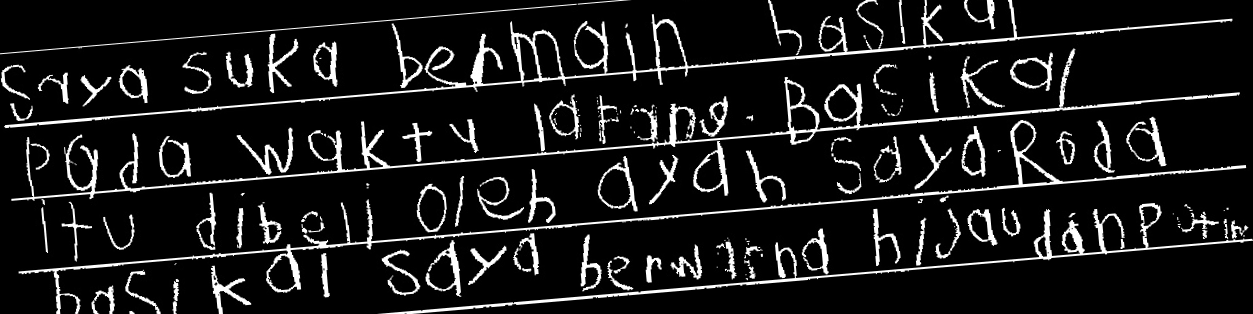 Saya suka bermain basikal
pada waktu latang. Basikal
itu dibeli oleh ayah saya. Roda
basikal saya berwarna hijau dan putih